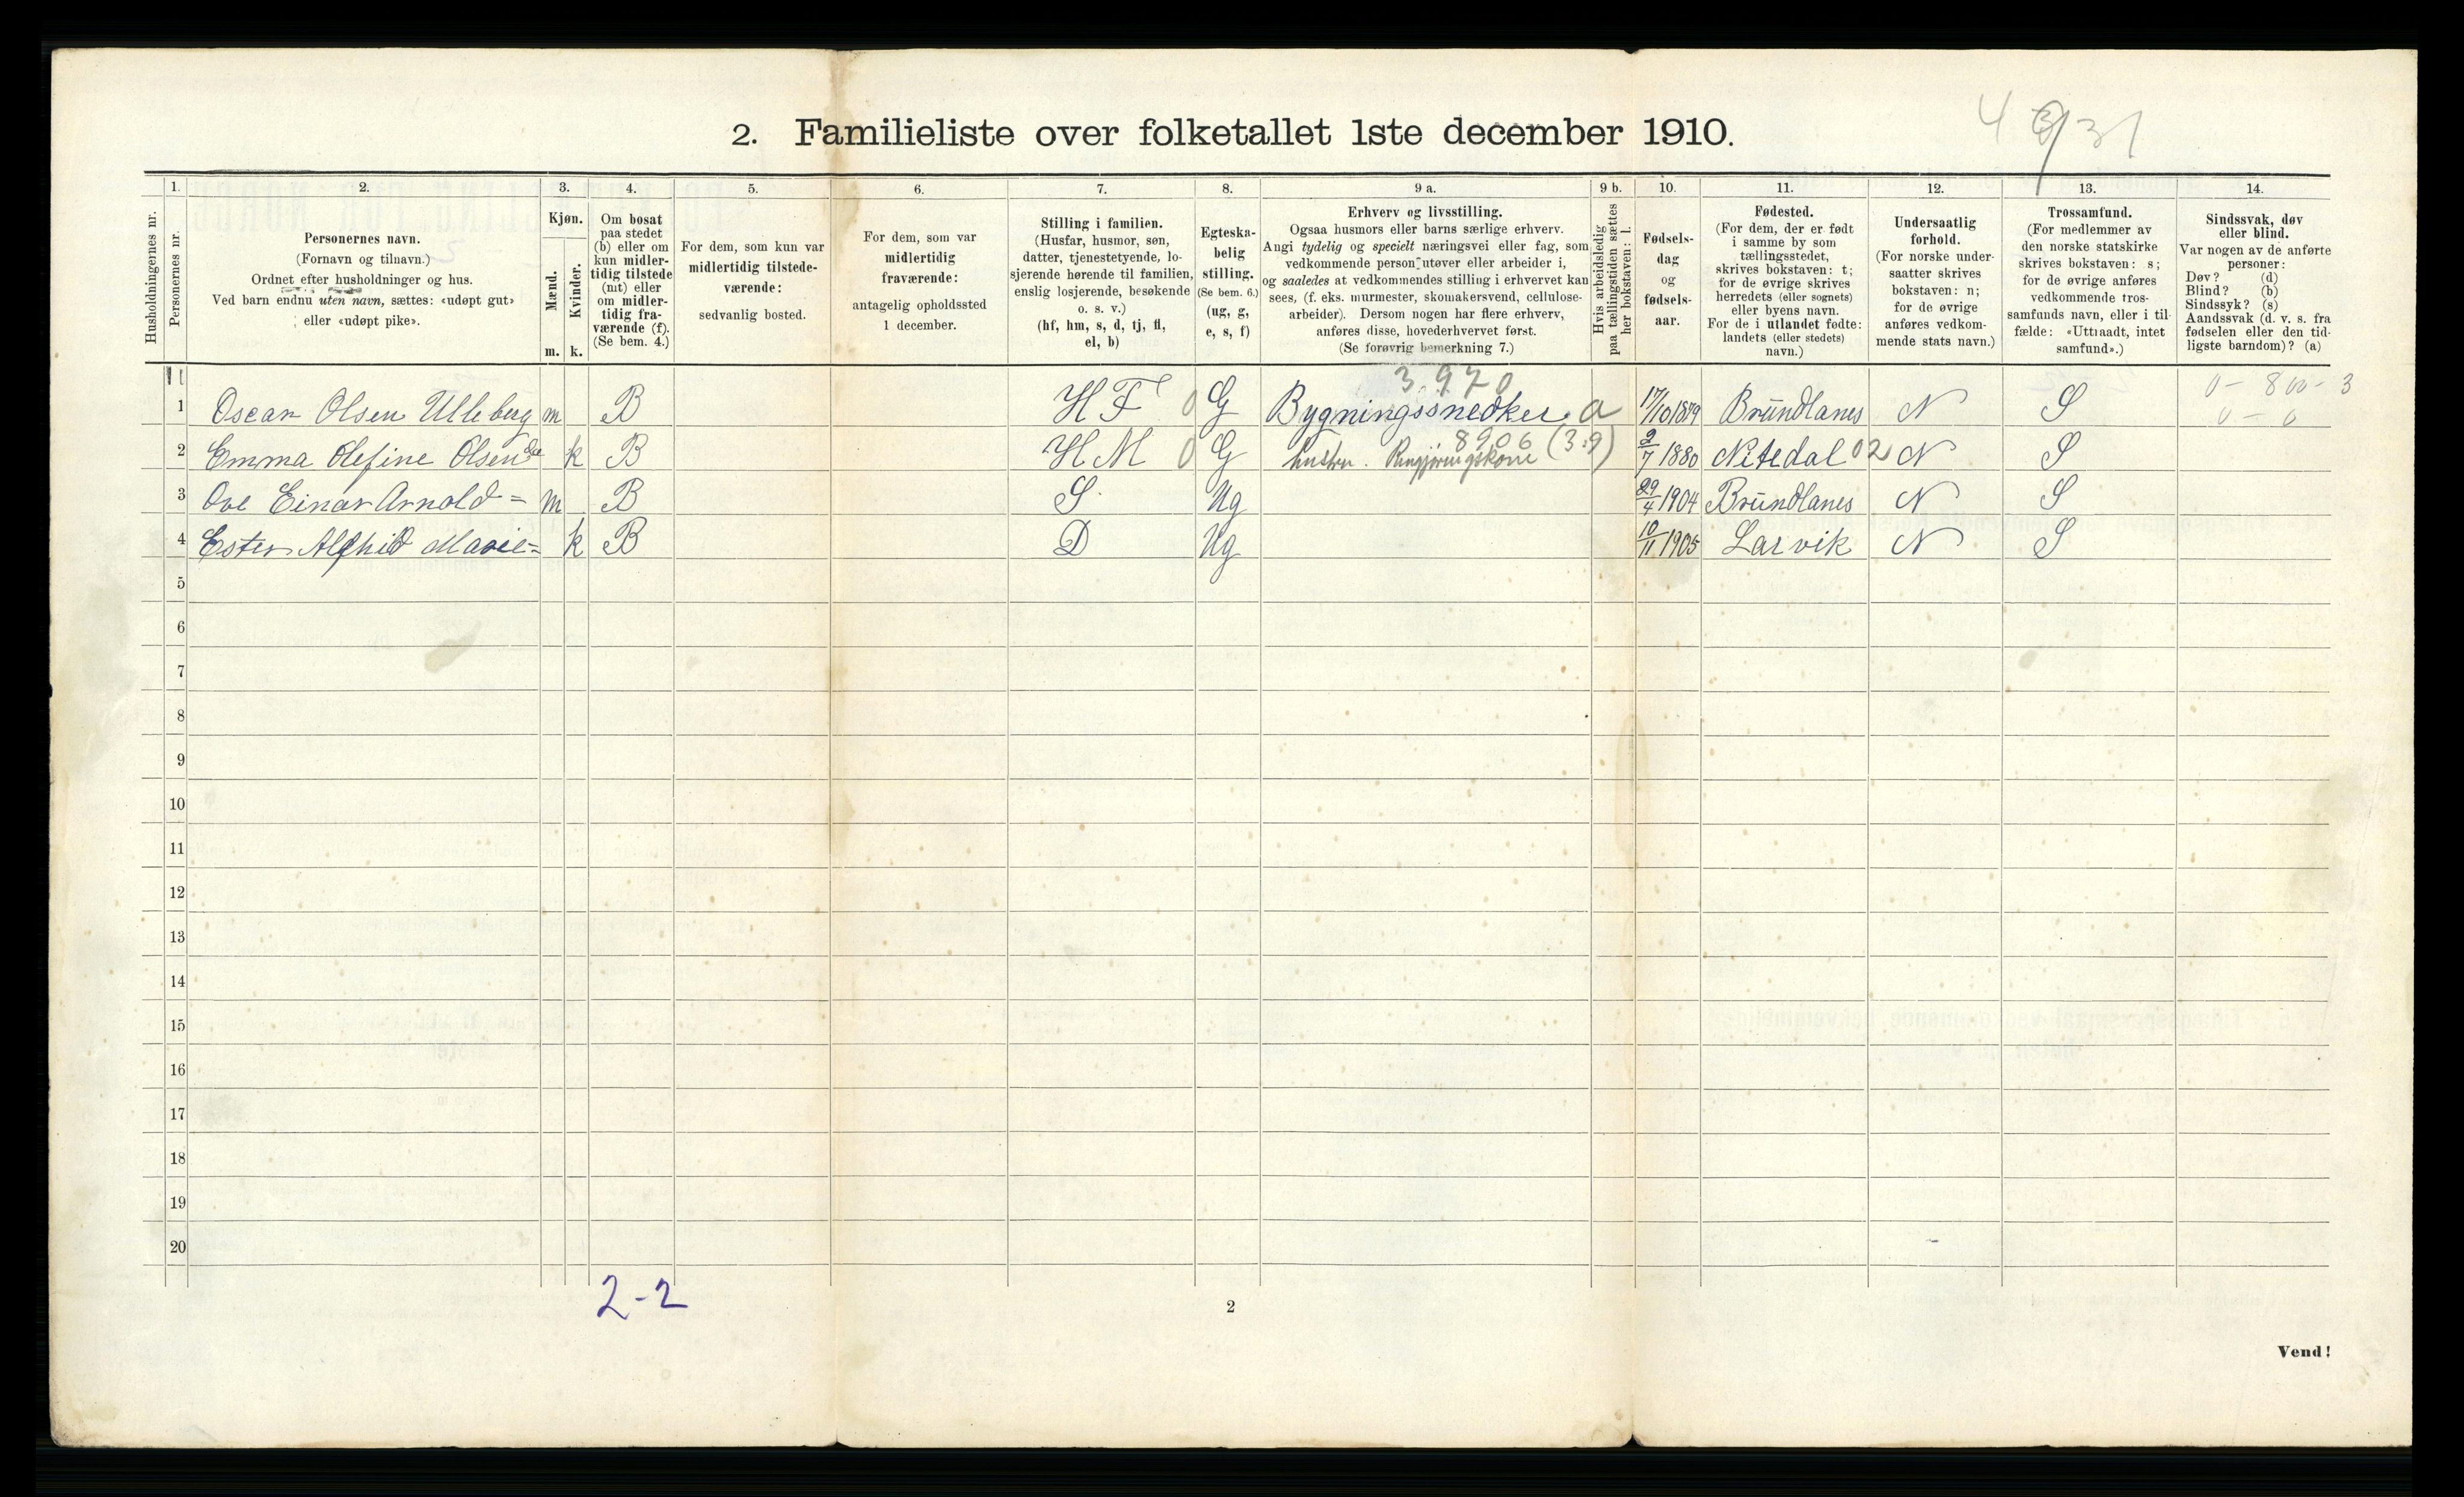 4 3/31
2. Familieliste over folketallet 1ste december 1910.
Husholdningernes nr.
1.
Personernes nr.
2.
Personernes navn.
(Fornavn og tilnavn.)
Ordnet efter husholdninger og hus.
Ved barn endnu uten navn, sættes: «udøpt gut»
eller «udøpt pike».
3.
Kjøn.
Mænd.
m.
Kvinder.
k.
4.
Om bosat
paa stedet
(b) eller om
kun midler-
tidig tilstede
(mt) eller
om midler-
tidig fra-
værende (f).
(Se bem. 4.)
5.
For dem, som kun var
midlertidig tilstede-
værende:
sedvanlig bosted.
6.
For dem, som var
midlertidig
fraværende:
antagelig opholdssted
1 december.
7.
Stilling i familien.
(Husfar, husmor, søn,
datter, tjenestetyende, lo-
sjerende hørende til familien,
enslig losjerende, besøkende
o. s. v.)
(hf, hm, s, d, tj, fl,
el, b)
8.
Egteska-
belig
stilling.
(Se bem. 6.)
(ug, g,
e, s, f)
9 a.
Erhverv og livsstilling.
Ogsaa husmors eller barns særlige erhverv.
Angi tydelig og specielt næringsvei eller fag, som
vedkommende person utøver eller arbeider i,
og saaledes at vedkommendes stilling i erhvervet kan
sees, (f. eks. murmester, skomakersvend, cellulose-
arbeider). Dersom nogen har flere erhverv,
anføres disse, hovederhvervet først.
(Se forøvrig bemerkning 7.)
9 b.
Hvis arbeidsledig
paa tællingstiden sættes
her bokstaven: l.
10.
Fødsels-
dag
og
fødsels-
aar.
11.
Fødested.
(For dem, der er født
i samme by som
tællingsstedet,
skrives bokstaven: t;
for de øvrige skrives
herredets (eller sognets)
eller byens navn.
For de i utlandet fødte:
landets (eller stedets)
navn.)
12.
Undersaatlig
forhold.
(For norske under-
saatter skrives
bokstaven: n;
for de øvrige
anføres vedkom-
mende stats navn.)
13.
Trossamfund.
(For medlemmer av
den norske statskirke
skrives bokstaven: s;
for de øvrige anføres
vedkommende tros-
samfunds navn, eller i til-
fælde: «Uttraadt, intet
samfund».)
14.
Sindssvak, døv
eller blind.
Var nogen av de anførte
personer:
Døv? (d)
Blind? (b)
Sindssyk? (s)
Aandssvak (d. v. s. fra
fødselen eller den tid-
ligste barndom)? (a)
3.970 0 - 800 - 3
1 Oscar Olsen Ulleberg m B HF 0 G Bygningssnedker a 17/10 1879 Brundlanes N S 0 - 0
8906 (3.9)
2 Emma Olefine Olsen do k B HM 0 G hustru. Rengjøringskone 2/7 1880 Nitedal 02 N S
3 Ove Einar Arnold = m B S Ug 29/4 1904 Brundlanes N S
4 Ester Alfhild Marie = k B D Ug 10/11 1905 Larvik N S
5
6
7
8
9
10
11
12
13
14
15
16
17
18
19
20
2-2
2
Vend!